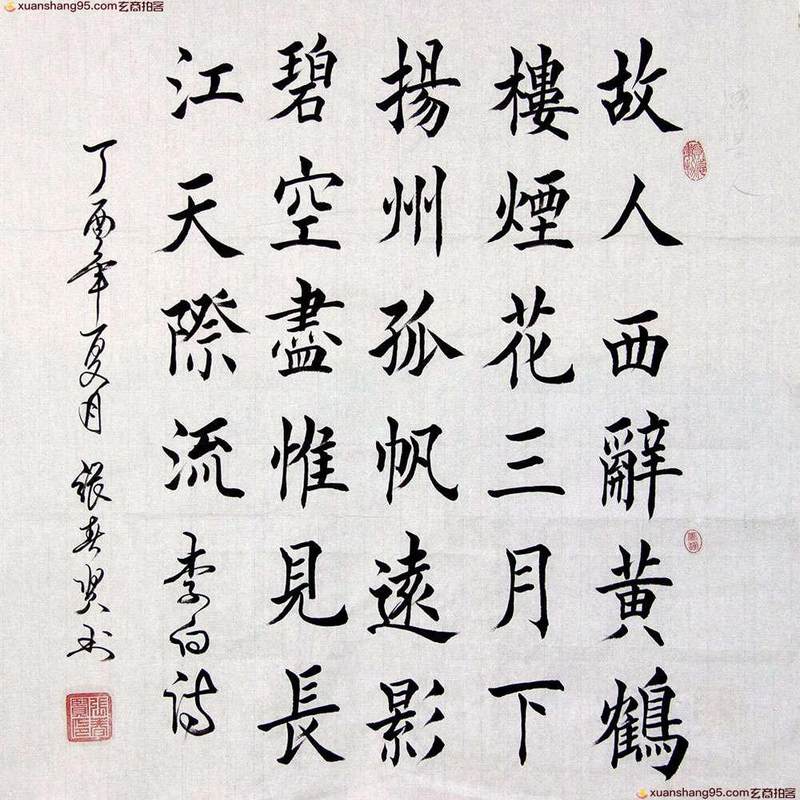 xuanshang95.com玄商拍客
故人西辭黄鶴
樓煙花三月下
揚州孤帆遠影
碧空盡惟見長
江天際流李白詩
丁酉年夏月張春賢書
張春賢印
xuanshang95.com玄商拍客